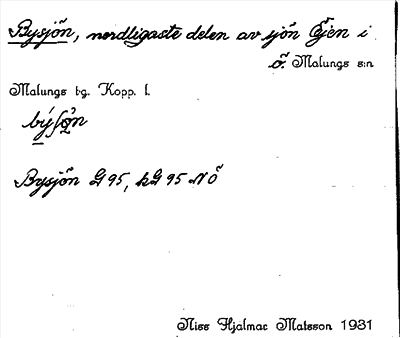 Bysjön, nordligaste delen av sjön Öjen i
ö. Malungs s:n
Malungs tg. Kopp. l.
Bysjön G 95, hG 95 NÖ
Niss Hjalmar Matsson 1931